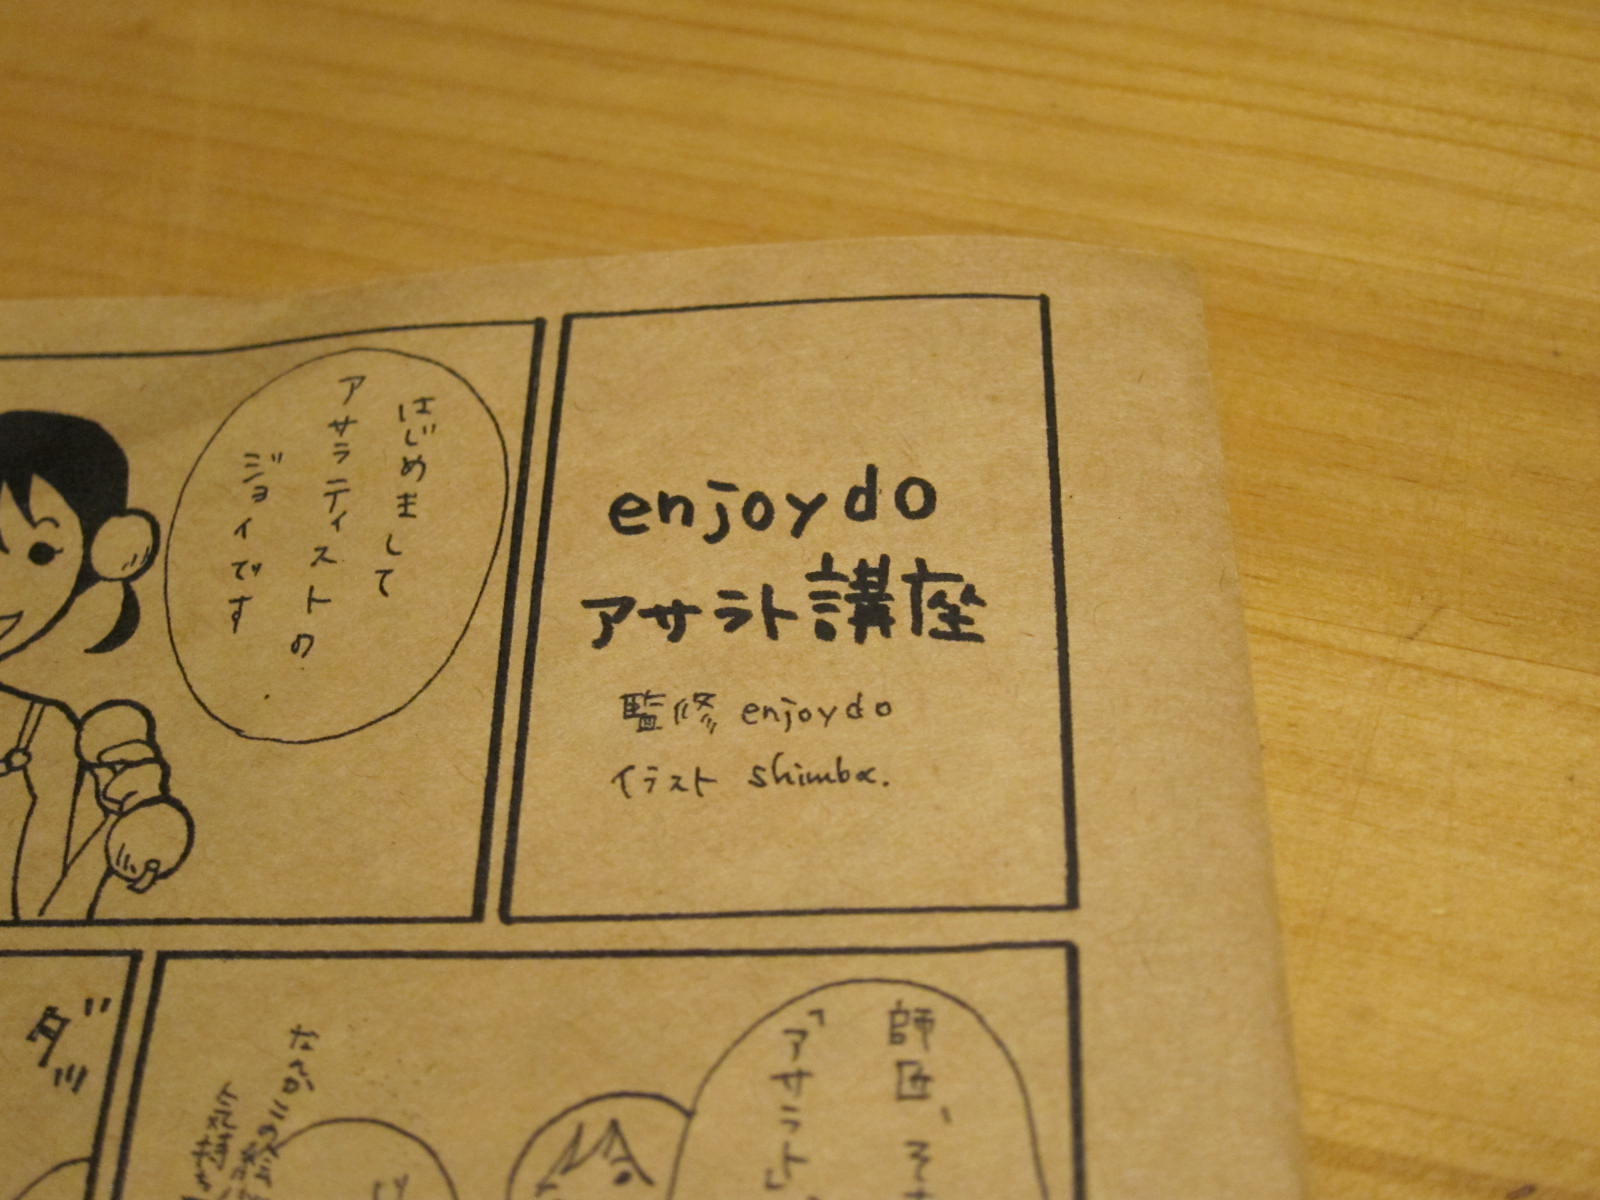 enjoydo
アサラト講座
監修 enjoydo
イラスト shimba.
はじめまして
アサラティストの
ジョイです
師匠、そ
「アサラト」